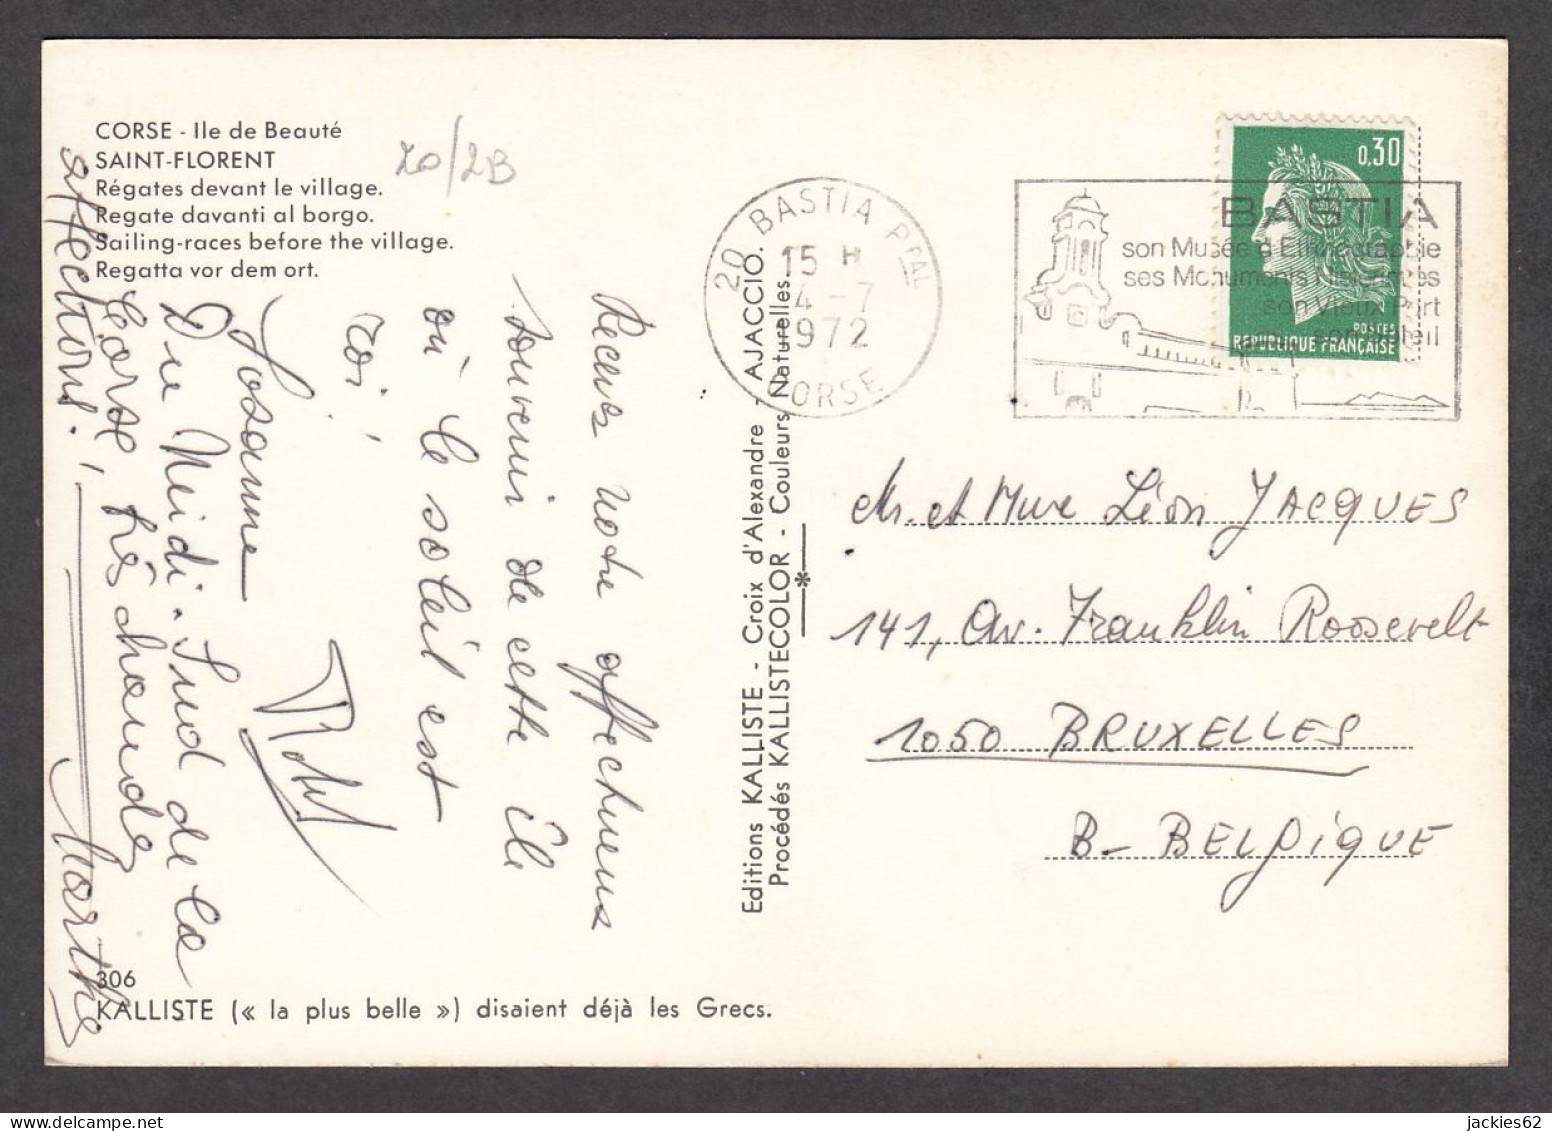 CORSE - Ile de Beauté
SAINT-FLORENT
Régates devant le village.
Regate davanti al borgo.
Sailing-races before the village.
Regatta vor dem ort.
20/2B
20 BASTIA PPAL
15 H
4-7
1972
CORSE
BASTIA
son Musée d'Ethnographie
ses Monuments Historiques
son Vieux Port
son soleil
0,30
POSTES
REPUBLIQUE FRANÇAISE
Recevez notre affectueux
souvenir de cette île
où le soleil est
roi!
Josanne
Robert
Du Midi-Sud de la
Corse, très chaudes
affections.
Marthe
Editions KALLISTE - Croix d'Alexandre - AJACCIO.
Procédés KALLISTECOLOR - Couleurs Naturelles
Mr. et Mme Léon JACQUES
141, Av. Franklin Roosevelt
1050 BRUXELLES
B- BELgique
306
KALLISTE (« la plus belle ») disaient déjà les Grecs.
jackies62